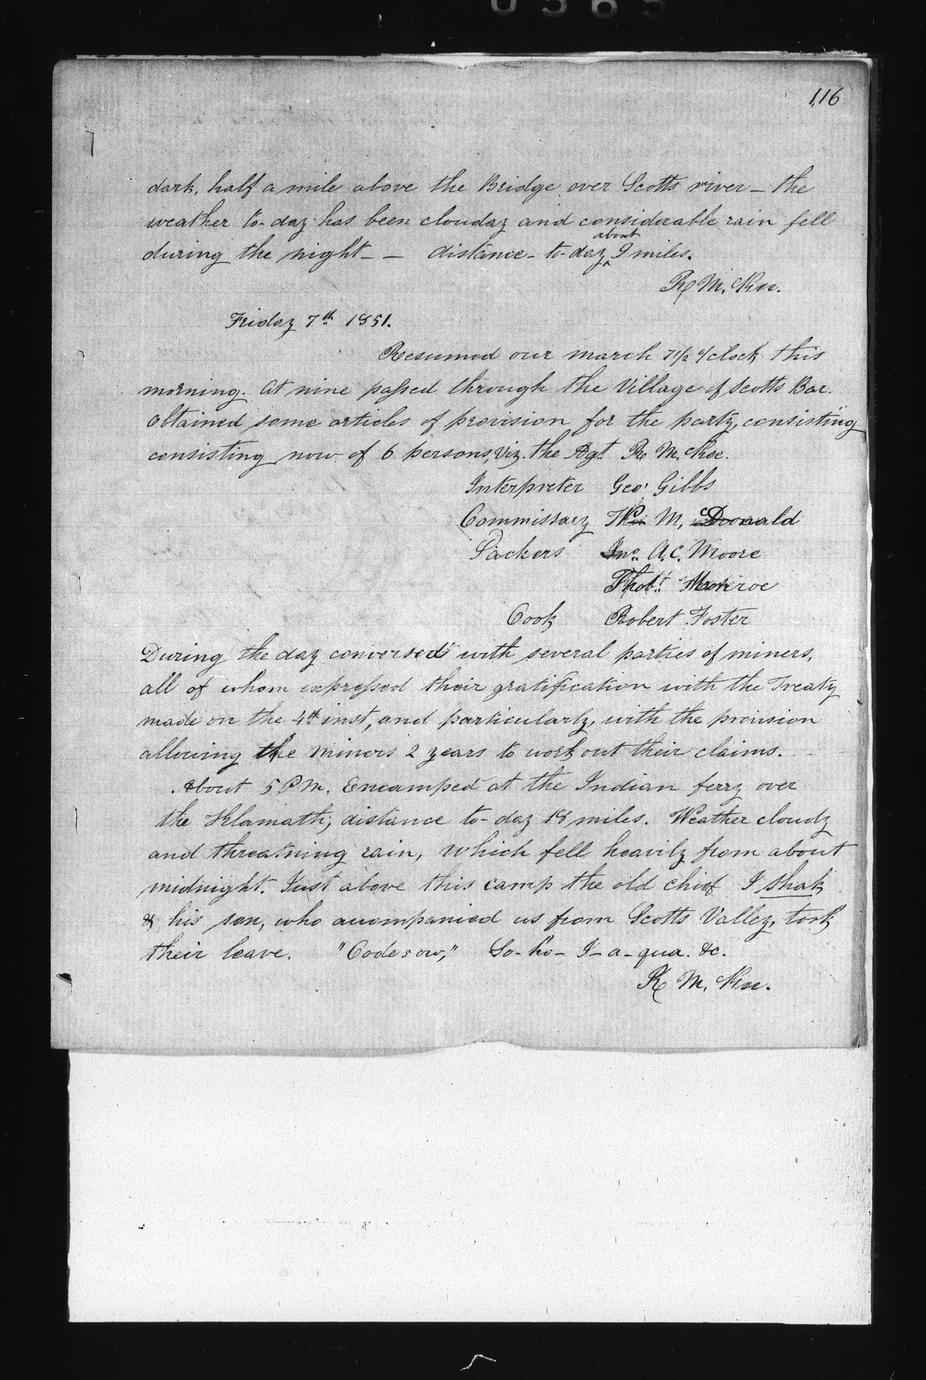 0565
116
dark, half a mile above the Bridge over Scotts river — the
weather to-day has been clouday and considerable rain fell
during the night — — distance - to-day about 9 miles.
R M. Kee.
Friday 7th 1851.
Resumed our march 7 1/2 o'clock this
morning. At nine passed through the Village of Scotts Bar.
Obtained some articles of provision for the party, consisting
consisting now of 6 persons, Viz. the Agt R. M. Kee.
Interpreter Geo' Gibbs
Commissary Wm M, cDonald
Packers Jno. A. C. Moore
Thos. Monroe
Cook Robert Foster
During the day conversed with several parties of miners,
all of whom expressed their gratification with the Treaty
made on the 4th inst, and particularly, with the provision
allowing the miners 2 years to work out their claims.
About 5 P M. Encamped at the Indian ferry over
the Klamath; distance to-day 18 miles. Weather cloudy
and threatning rain, which fell heavily from about
midnight. Just above this camp the old chief I shak
& his son, who accompanied us from Scotts Valley, took
their leave. "Codesow," So-ho- I-a-qua. &c.
R M. Kee.